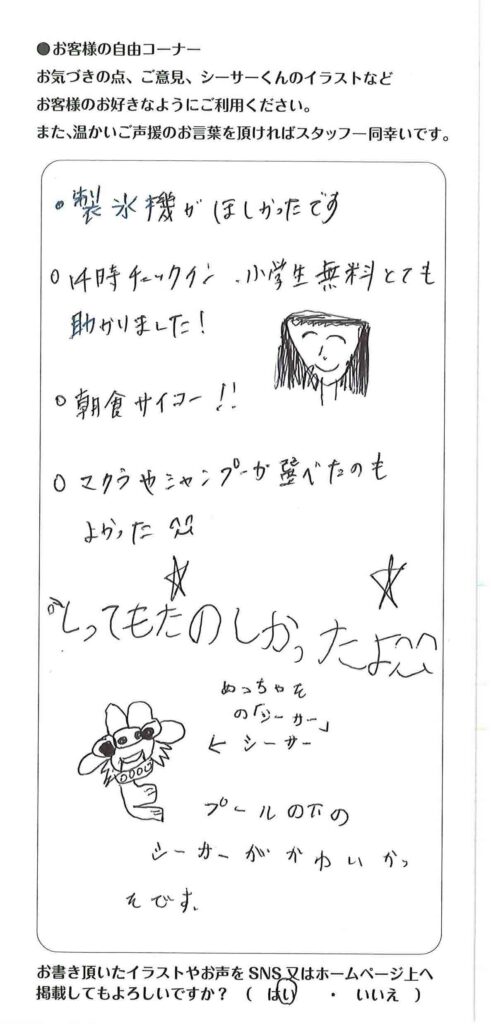 ●お客様の自由コーナー
お気づきの点、ご意見、シーサーくんのイラストなど
お客様のお好きなようにご利用ください。
また、温かいご声援のお言葉を頂ければスタッフ一同幸いです。
・製氷機がほしかったです
○ 14時チェックイン、小学生無料とても
助かりました!
○ 朝食サイコー!!
○ マクラやシャンプーが選べたのも
よかった ^^
とってもたのしかったよ^^
の「シーサー」
← シーサー
プールの下の
シーサーがかわいかっ
たです。
お書き頂いたイラストやお声をSNS又はホームページ上へ
掲載してもよろしいですか? ( はい ・ いいえ )